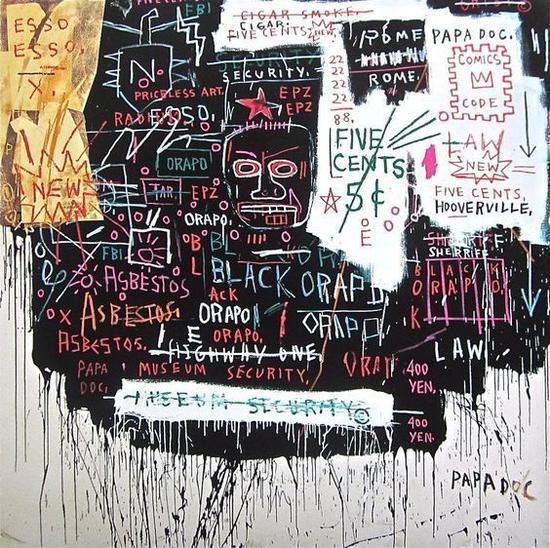 ESSO
ESSO.
X.
FBI
CIGAR SMOKE.
CIGAR.
FIVE CENTS
NEW.
ROME
ROME.
PAPA DOC.
COMICS
CODE
N
SECURITY.
PRICELESS ART.
EPZ
EPZ
22
22
22
22
88.
FIVE
CENTS
5¢
LAW
NEW
FIVE CENTS.
HOOVERVILLE,
ORAPO
NEW
TAR
EPZ
ORAPO.
E
FBI
ASBESTOS
BLACK ORAP
SHERRIFF
BLACK
ORAPO
ASBESTOS.
ACK
ORAPO
ORAPO
ASBESTOS.
ORAPO.
HIGHWAY ONE,
LAW
PAPA
DOC,
MUSEUM SECURITY,
400
YEN,
MUSEUM SECURITY ©
400
YEN.
PAPA DOC